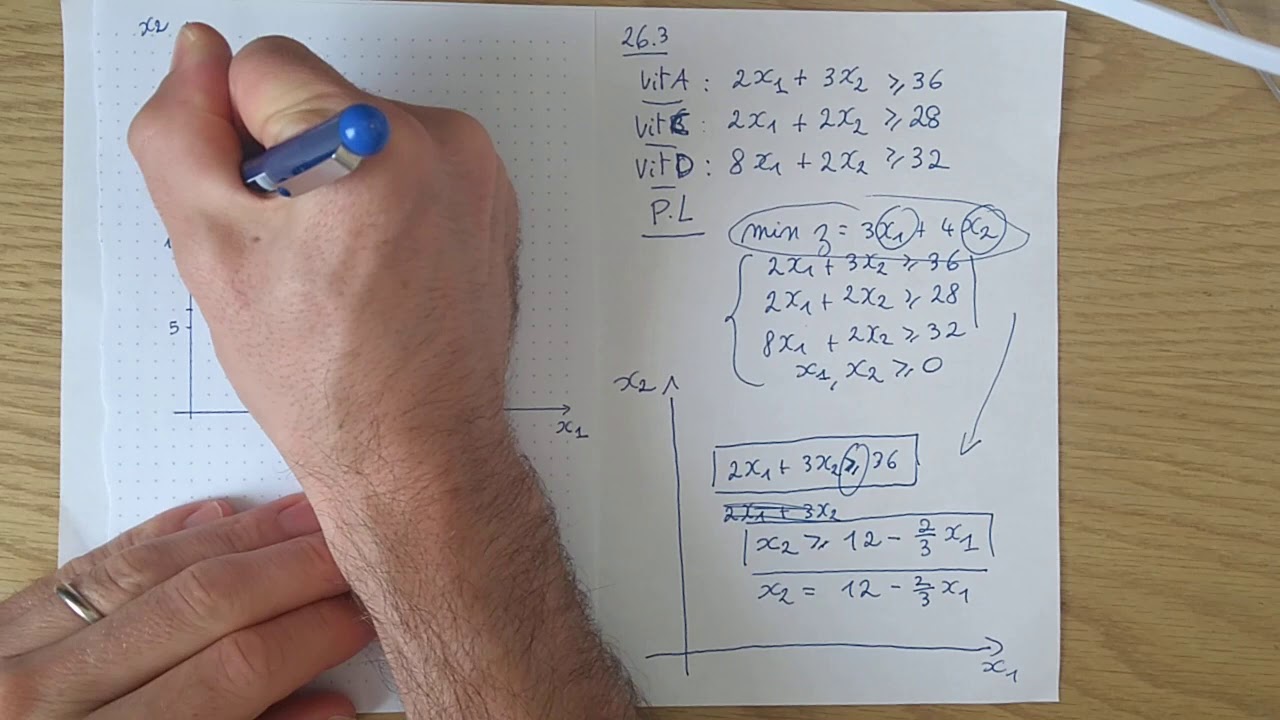 x₂
5
x₁
26.3
Vit A : 2x₁ + 3x₂ ⩾ 36
Vit C : 2x₁ + 2x₂ ⩾ 28
Vit D : 8x₁ + 2x₂ ⩾ 32
P.L
min z = 3x₁ + 4x₂
2x₁ + 3x₂ ⩾ 36
2x₁ + 2x₂ ⩾ 28
8x₁ + 2x₂ ⩾ 32
x₁, x₂ ⩾ 0
x₂
2x₁ + 3x₂ ⩾ 36
2x₁ + 3x₂
x₂ ⩾ 12 - 2/3 x₁
x₂ = 12 - 2/3 x₁
x₁